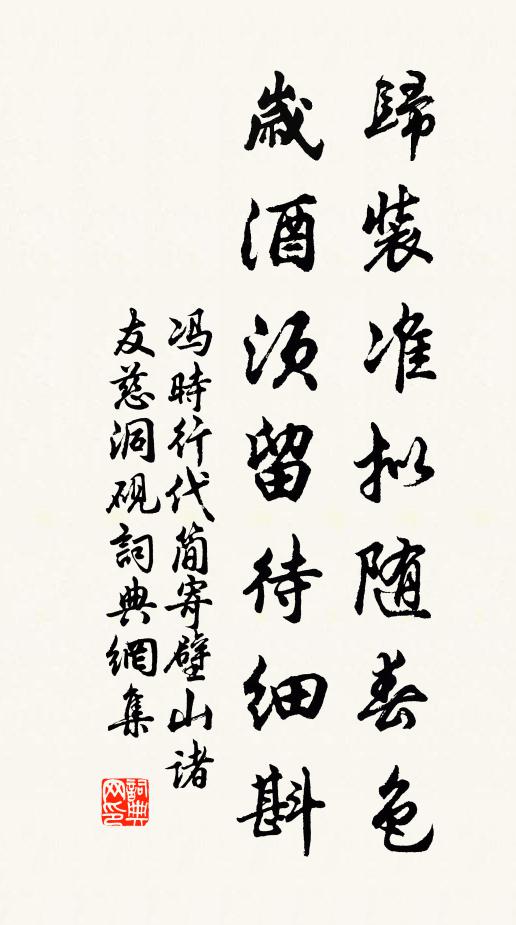 歸裝准拟随春色
歲酒須留待細斟
冯時行代简寄壁山诸
友慈洞砚詞典網集
詞典
网印